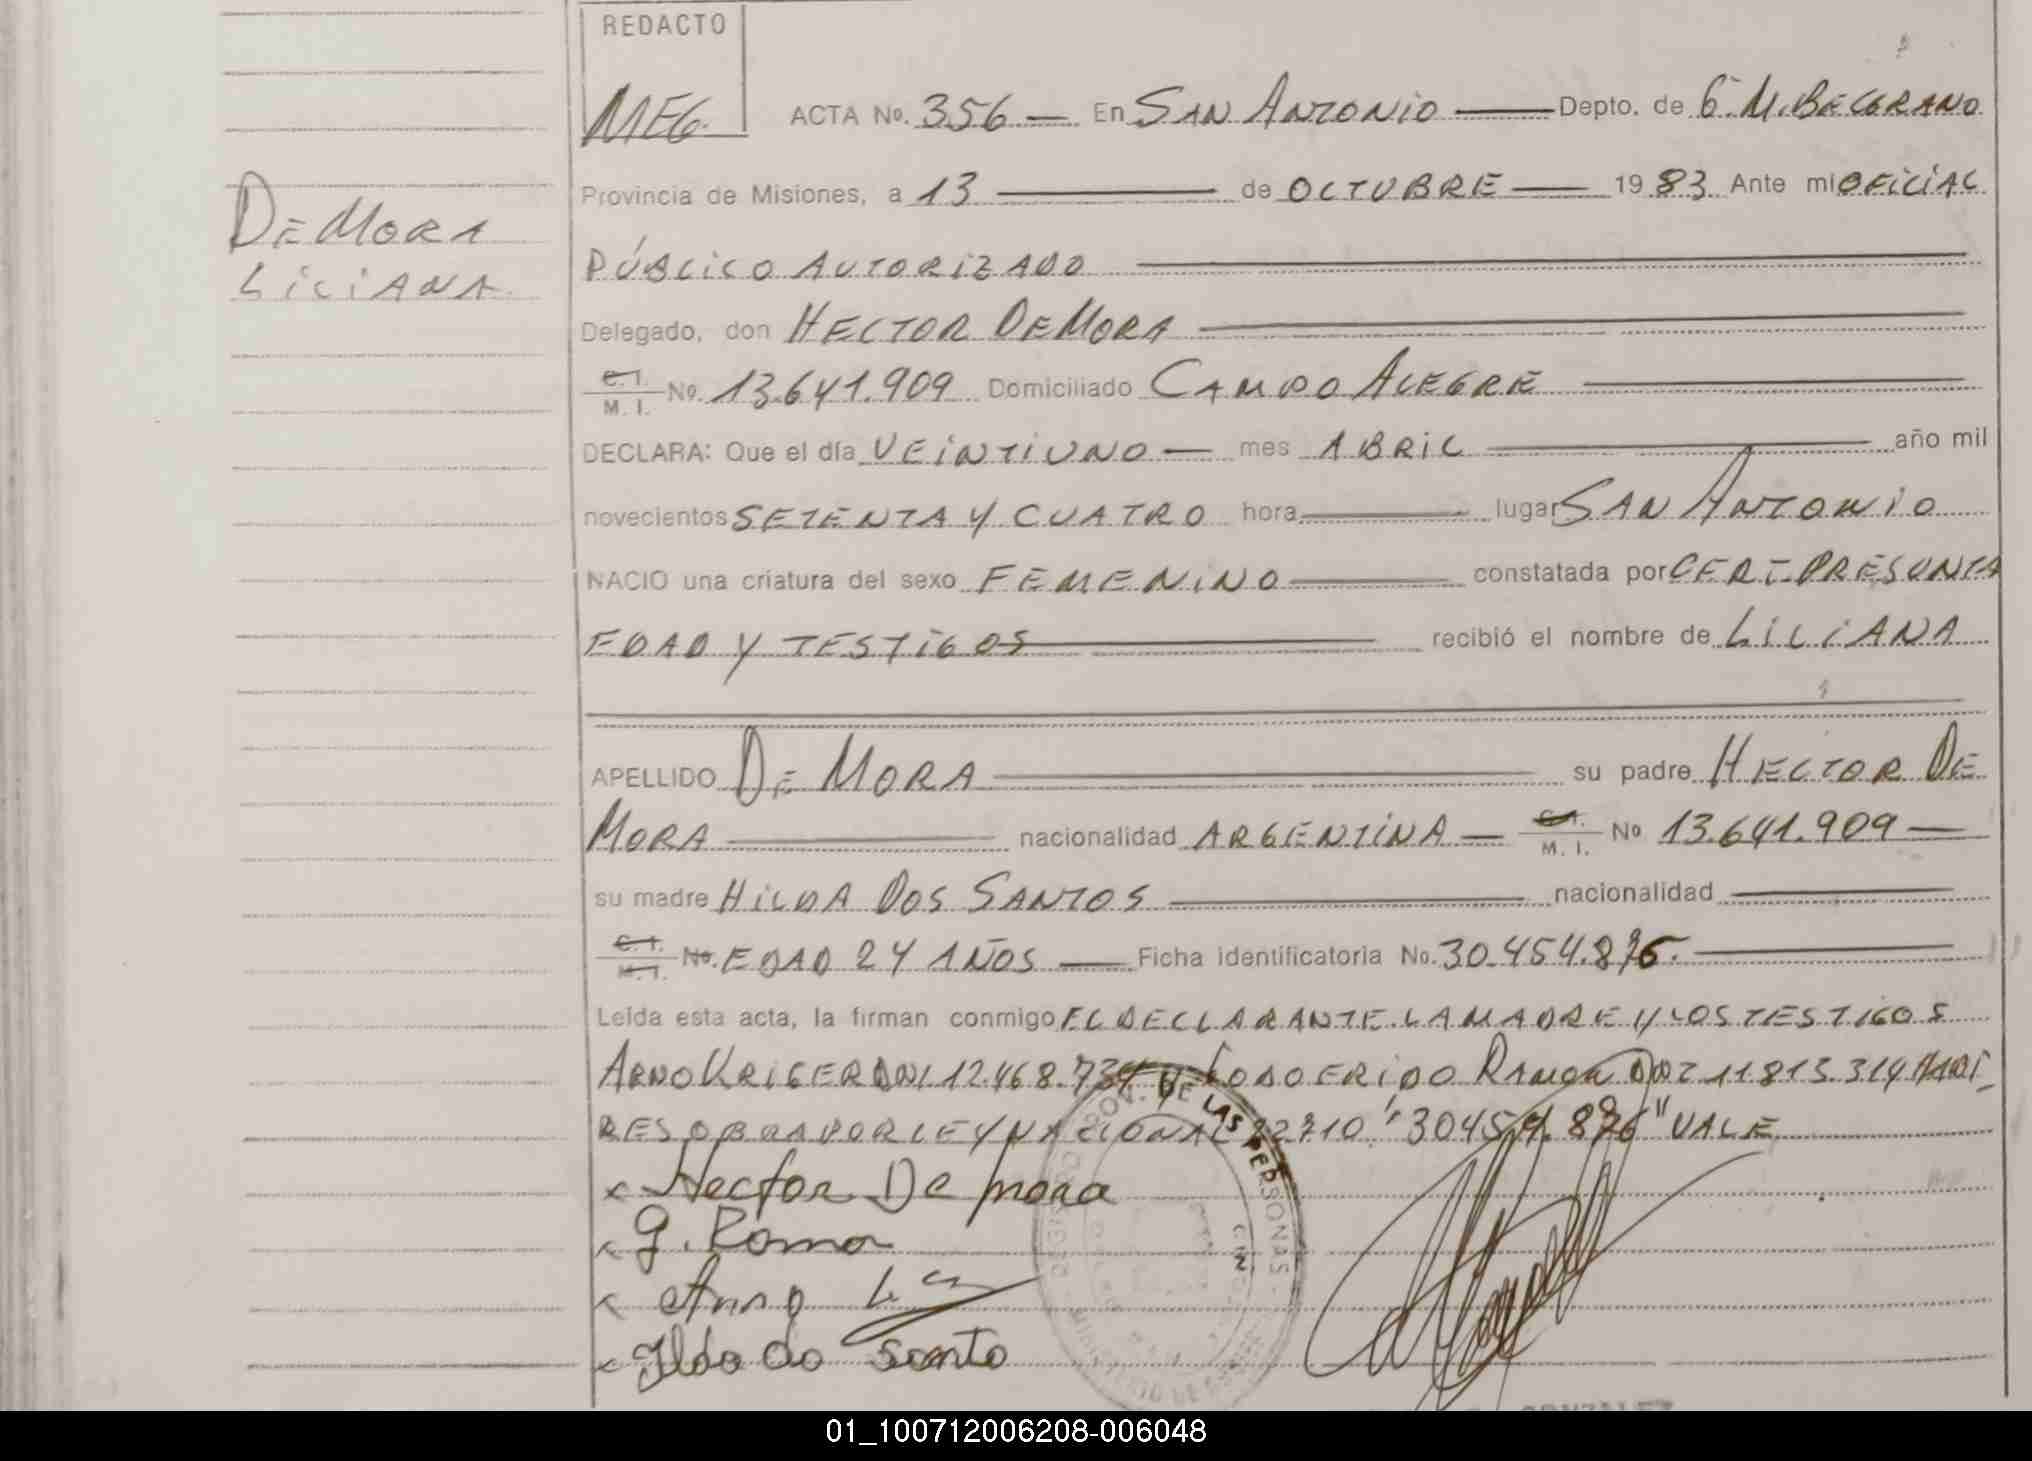 REDACTO
MEG.
ACTA No. 356 — En SAN ANTONIO — Depto. de G. M. BELGRANO
Provincia de Misiones, a 13 — de OCTUBRE — 19 83 Ante mi OFICIAL
PÚBLICO AUTORIZADO
DE MORA
LILIANA
Delegado, don HECTOR DE MORA
C.I. / M. I. No. 13.641.909 Domiciliado CAMPO ALEGRE
DECLARA: Que el día VEINTIUNO — mes ABRIL — año mil
novecientos SETENTA Y CUATRO hora — lugar SAN ANTONIO
NACIO una criatura del sexo FEMENINO — constatada por CERT. PRESUNTA
EDAD Y TESTIGOS — recibió el nombre de LILIANA
APELLIDO DE MORA — su padre HECTOR DE
MORA — nacionalidad ARGENTINA — C.I. / M. I. No 13.641.909 —
su madre HILDA DOS SANTOS — nacionalidad —
C.I. / M.I. No. EDAD 24 AÑOS — Ficha identificatoria No. 30.454.876. —
Leída esta acta, la firman conmigo EL DECLARANTE. LA MADRE Y LOS TESTIGOS
ARNO KRIGER DNI 12.468.734 Y RAMON 11.813.314
POR LEY NACIONAL 22710. "30454.876" VALE
DE LAS PERSONAS
x Hector De mora
x g. Roma
x Arno
x Ilda do santo
GONZALEZ
01_100712006208-006048